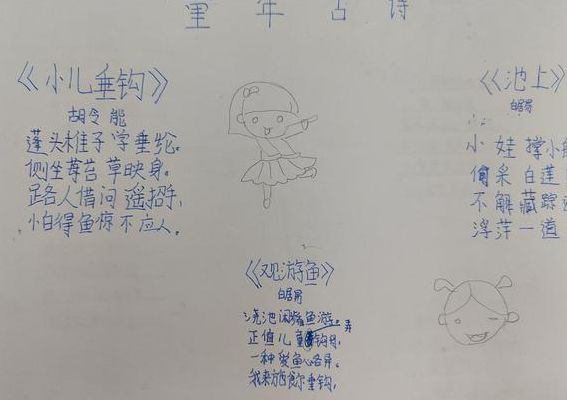 童年古诗
《小儿垂钓》
胡令能
蓬头稚子学垂纶。
侧坐莓苔草映身。
路人借问遥招手,
怕得鱼惊不应人。
《池上》
白居易
小娃撑小
偷采白莲
不解藏踪
浮萍一道
《观游鱼》
白居易
浇池闲 鱼游。
弄
正值儿童 钓舟,
一种爱鱼心各异。
我来施食尔垂钩,